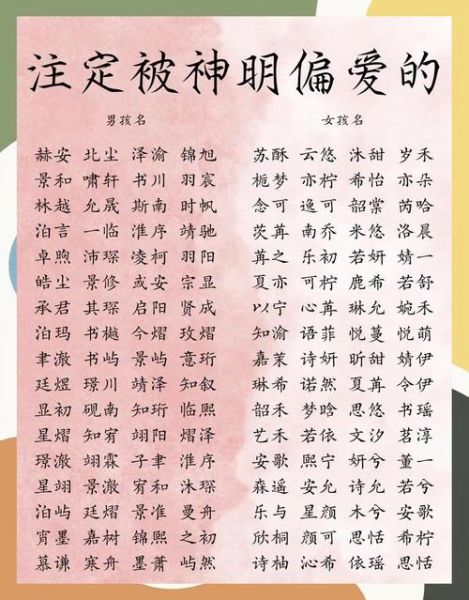 注定被神明偏爱的
男孩名 女孩名
赫安 北尘 泽渝 锦旭 苏酥 云悠 沐甜 岁禾
景和 啸轩 书川 羽宸 栀梦 亦柠 希怡 亦朵
林越 允晟 斯南 时帆 念可 逸可 韶棠 芮哈
泊言 一临 淮序 靖驰 茨苒 南乔 米悠 洛晨
卓煦 沛琛 凌柯 羽阳 苒之 乐初 若妍 婧一
皓尘 景修 或安 宗显 夏亦 可柠 鹿希 若舒
承君 其琛 启阳 贤成 以宁 心苒 琳允 婉禾
泊玛 书樾 今熠 玫熠 知渝 语菲 悦蔓 悦萌
聿澈 书屿 景屿 意珩 嘉茉 诗妍 昕甜 婧伊
廷煜 璟川 靖泽 知叙 琳希 诺然 夏苒 令伊
显初 砚南 知珩 临熙 韶禾 梦晗 思悠 书瑶
星熠 知宥 翊阳 熠泽 艺禾 若依 文汐 茗淳
璟澈 翊霖 子聿 淮序 安歌 熙宁 妍兮 董一
星翊 景澈 宥和 沐琛 森遥 安允 诗允 若兮
泊屿 廷熠 景淮 曼舟 乐与 星颜 木兮 安歌
宵墨 嘉树 锦熙 之初 欣桐 颜可 思恬 希柠
慕谦 寒舟 墨萧 屿然 诗柚 沁希 依瑶 思恬